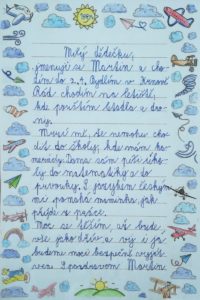 Milý dědečku,
jmenuji se Martin a cho-
dím do 2.A. Bydlím v
Rád chodím na letiště,
kde pouštím letadla a dro-
ny.
Mrzí mě, že nemohu cho-
dit do školy, kde mám ka-
marády. Doma sám píši úko-
ly do matematiky a do
prvouky. S jazykem českým
mi pomáhá maminka, jak
přijde z práce.
Moc se těším, až bude
vše jako dřív a vy i já
budeme moci bezpečně vyjít
ven. S pozdravem Martin